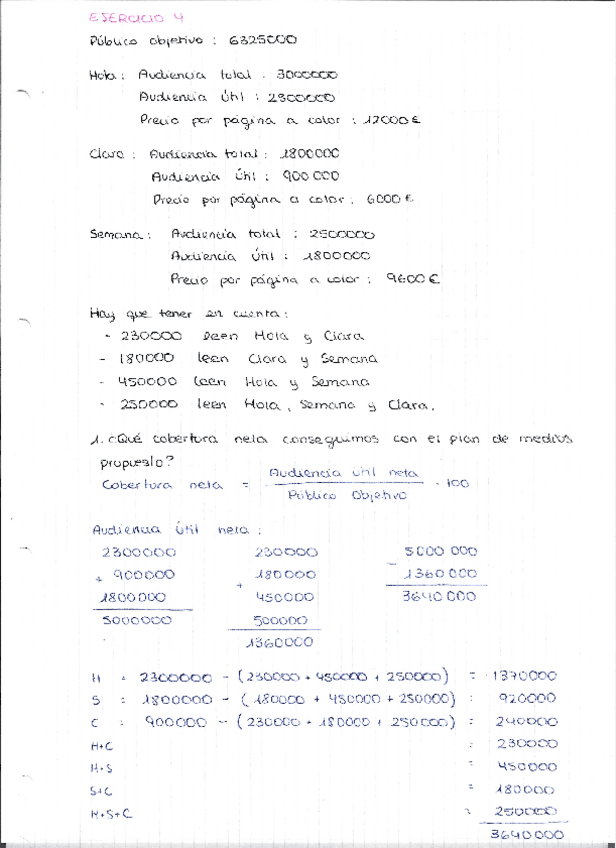 EJERCICIO 4
Público objetivo : 6325000
Hola : Audiencia total : 3000000
Audiencia útil : 2300000
Precio por página a color : 12000 €
Clara : Audiencia total : 1800000
Audiencia útil : 900 000
Precio por página a color : 6000 €
Semana : Audiencia total : 2500000
Audiencia útil : 1800000
Precio por página a color : 9600 €
Hay que tener en cuenta :
- 230000 leen Hola y Clara
- 180000 leen Clara y Semana
- 450000 leen Hola y Semana
- 250000 leen Hola, Semana y Clara.
1. ¿Qué cobertura neta conseguimos con el plan de medios
propuesto?
Cobertura neta = Audiencia útil neta / Público Objetivo · 100
Audiencia útil neta :
2300000 230000 5000 000
+ 900000 + 180000 - 1360 000
1800000 450000 3640 000
5000000 500000
1360000
H = 2300000 - (230000 + 450000 + 250000) = 1370000
S : 1800000 - (180000 + 450000 + 250000) : 920000
C : 900000 - (230000 + 180000 + 250000) : 240000
H+C : 230000
H+S = 450000
S+C = 180000
H+S+C = 250000
3640000